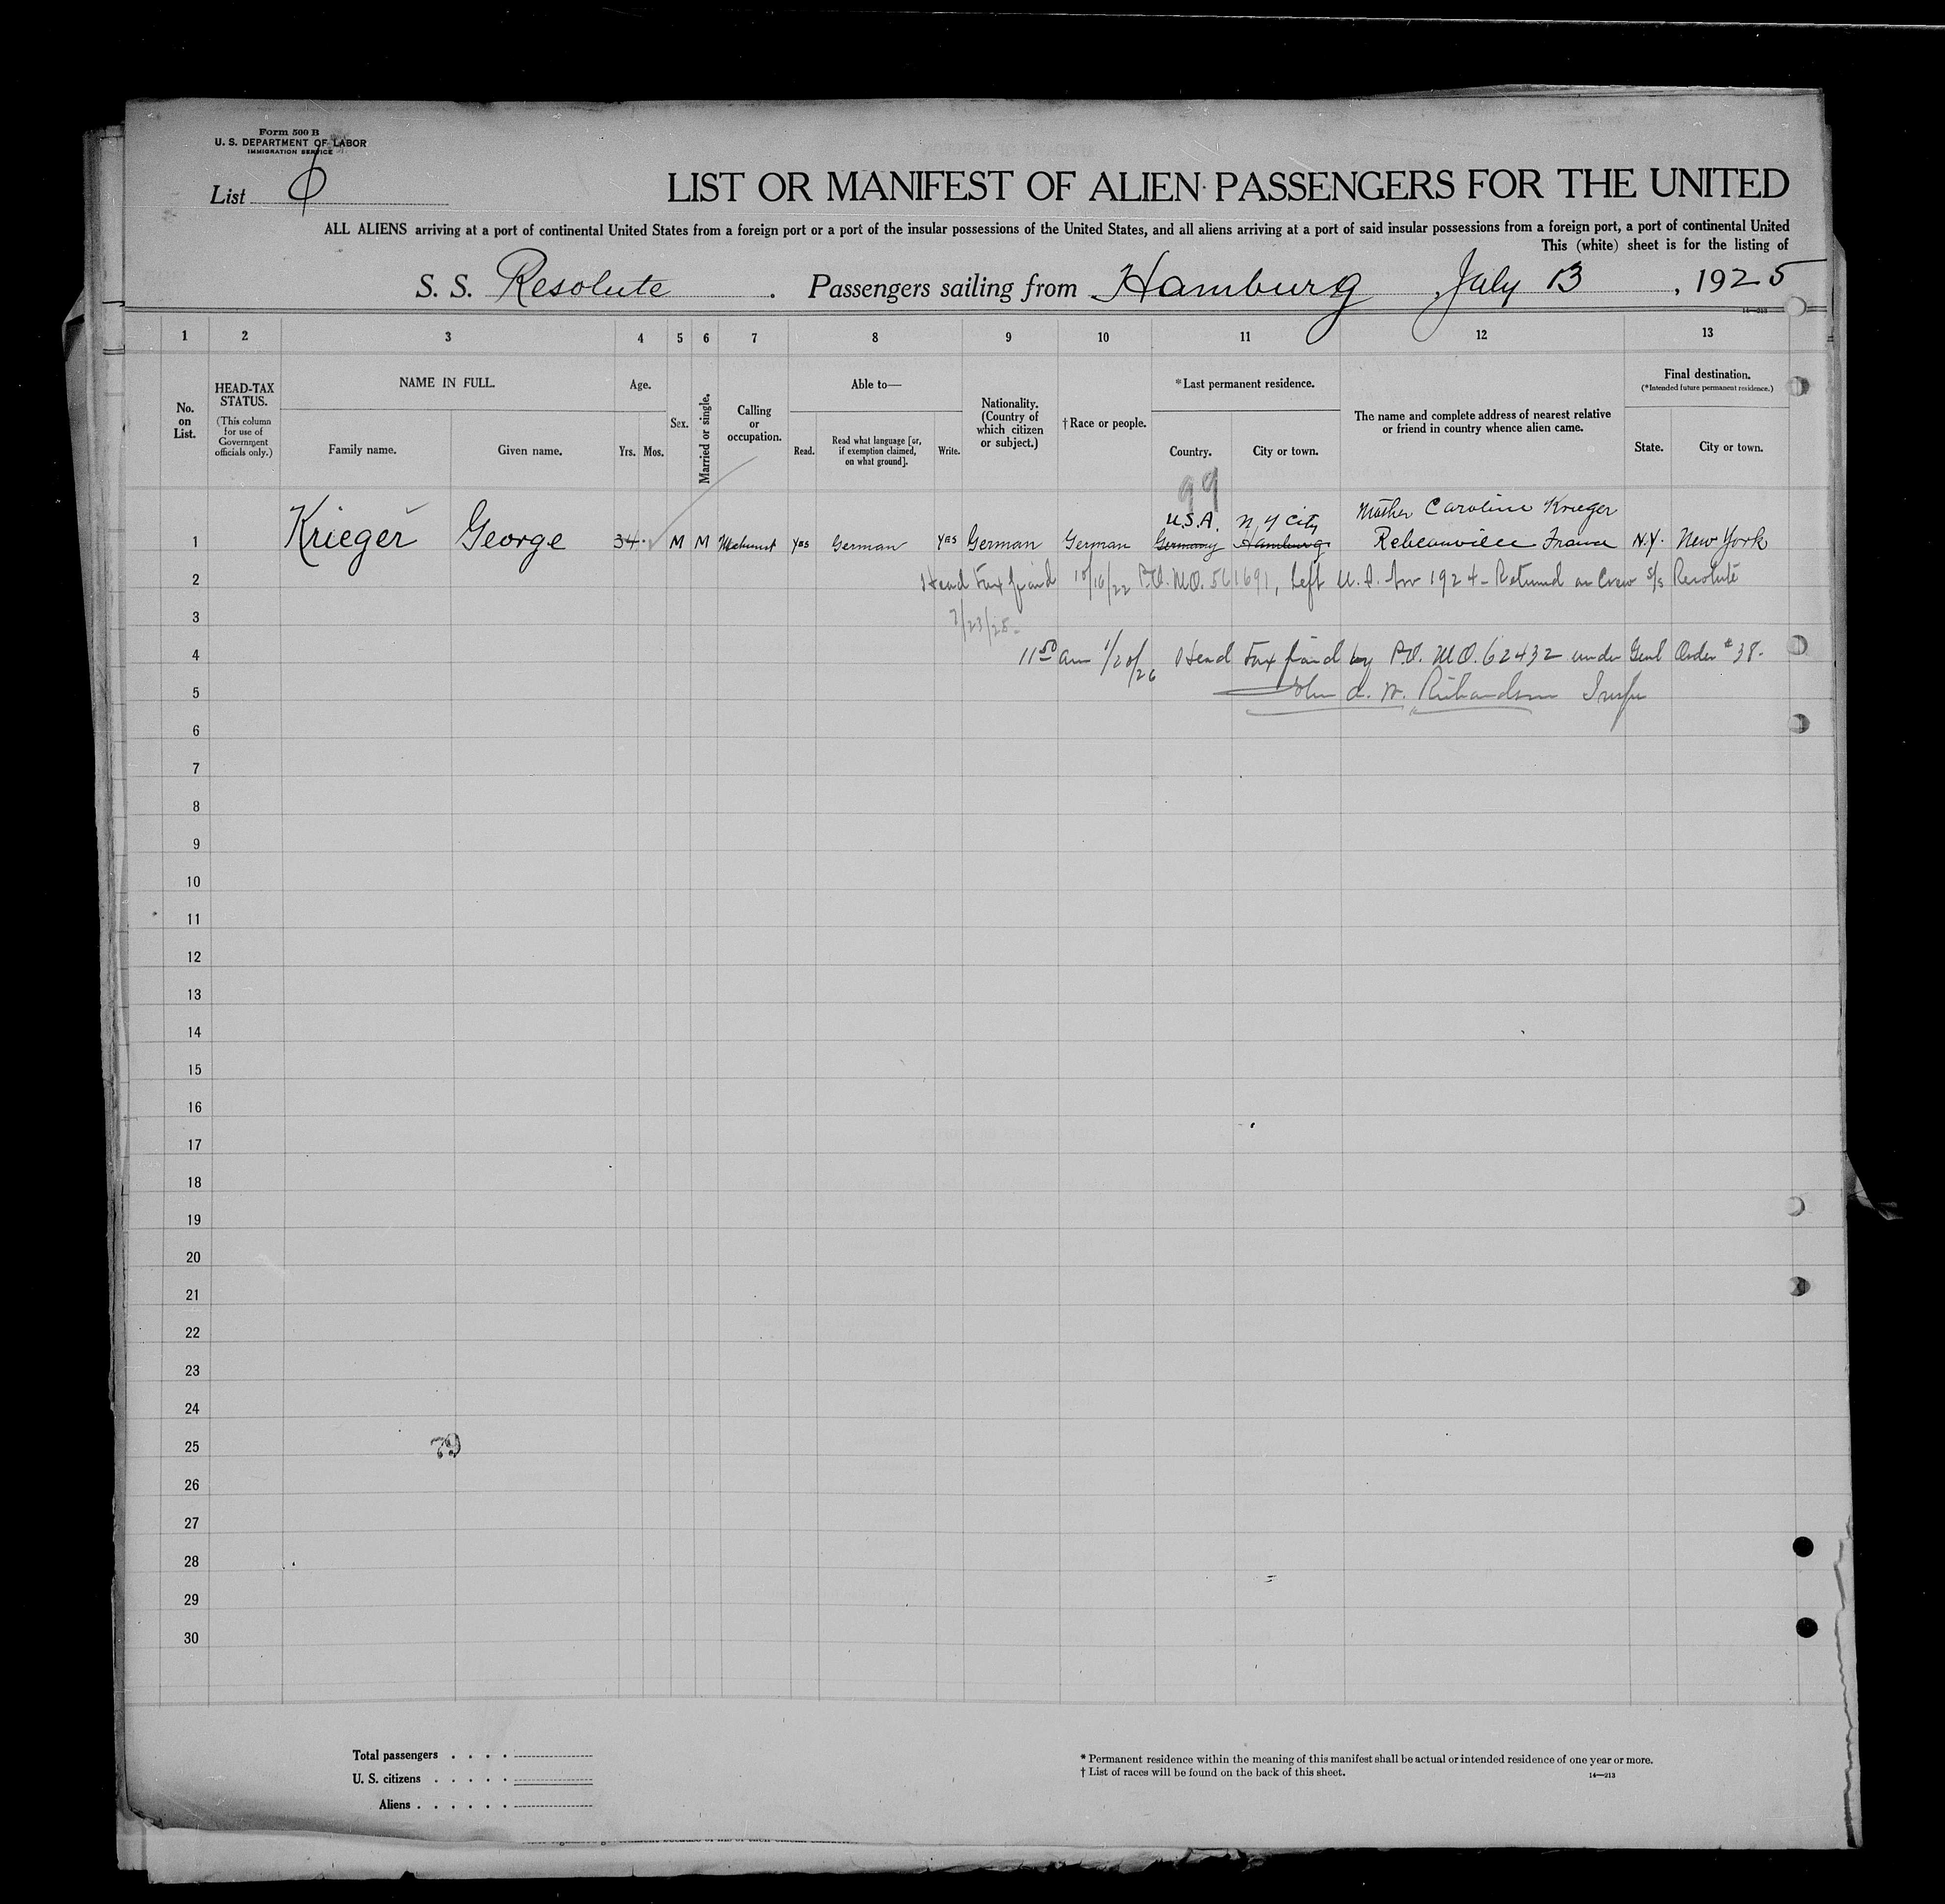 Form 500 B
U. S. DEPARTMENT OF LABOR
IMMIGRATION SERVICE
List
LIST OR MANIFEST OF ALIEN PASSENGERS FOR THE UNITED
ALL ALIENS arriving at a port of continental United States from a foreign port or a port of the insular possessions of the United States, and all aliens arriving at a port of said insular possessions from a foreign port, a port of continental United
This (white) sheet is for the listing of
S. S. Resolute . Passengers sailing from Hamburg , July 13 , 1925
14—213
1 2 3 4 5 6 7 8 9 10 11 12 13
No. on List.
HEAD-TAX STATUS.
(This column for use of Government officials only.)
NAME IN FULL.
Family name. Given name.
Age.
Yrs. Mos.
Sex.
Married or single.
Calling or occupation.
Able to—
Read. Read what language [or, if exemption claimed, on what ground]. Write.
Nationality. (Country of which citizen or subject.)
† Race or people.
*Last permanent residence.
Country. City or town.
The name and complete address of nearest relative or friend in country whence alien came.
Final destination.
(*Intended future permanent residence.)
State. City or town.
99
U.S.A. N. Y City Mother Caroline Krieger
1 Krieger George 34 M M Machinist yes German yes German German Germany Hamburg France N.Y. New York
2 Head Tax paid 10/16/22 P.O. M.O. 561691, Left U.S. 1924 - Returned on Crew S/S Resolute
3 7/23/25-
4 11 50 am 1/20/26 Head Tax paid by P.O. M.O. 62432 under Genl Order #38.
5 John A. W. Richardson Inspr
6
7
8
9
10
11
12
13
14
15
16
17
18
19
20
21
22
23
24
25 79
26
27
28
29
30
Total passengers . . . .
U. S. citizens . . . . .
Aliens . . . . . .
* Permanent residence within the meaning of this manifest shall be actual or intended residence of one year or more.
† List of races will be found on the back of this sheet.
14—213